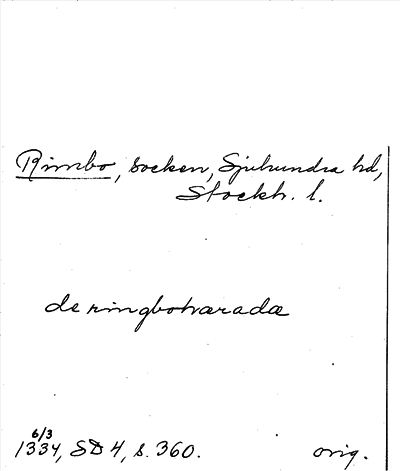 Rimbo, socken, Sjuhundra hd,
Stockh. l.
de ringbohæradæ
6/3
1334, SD 4, s. 360. orig.